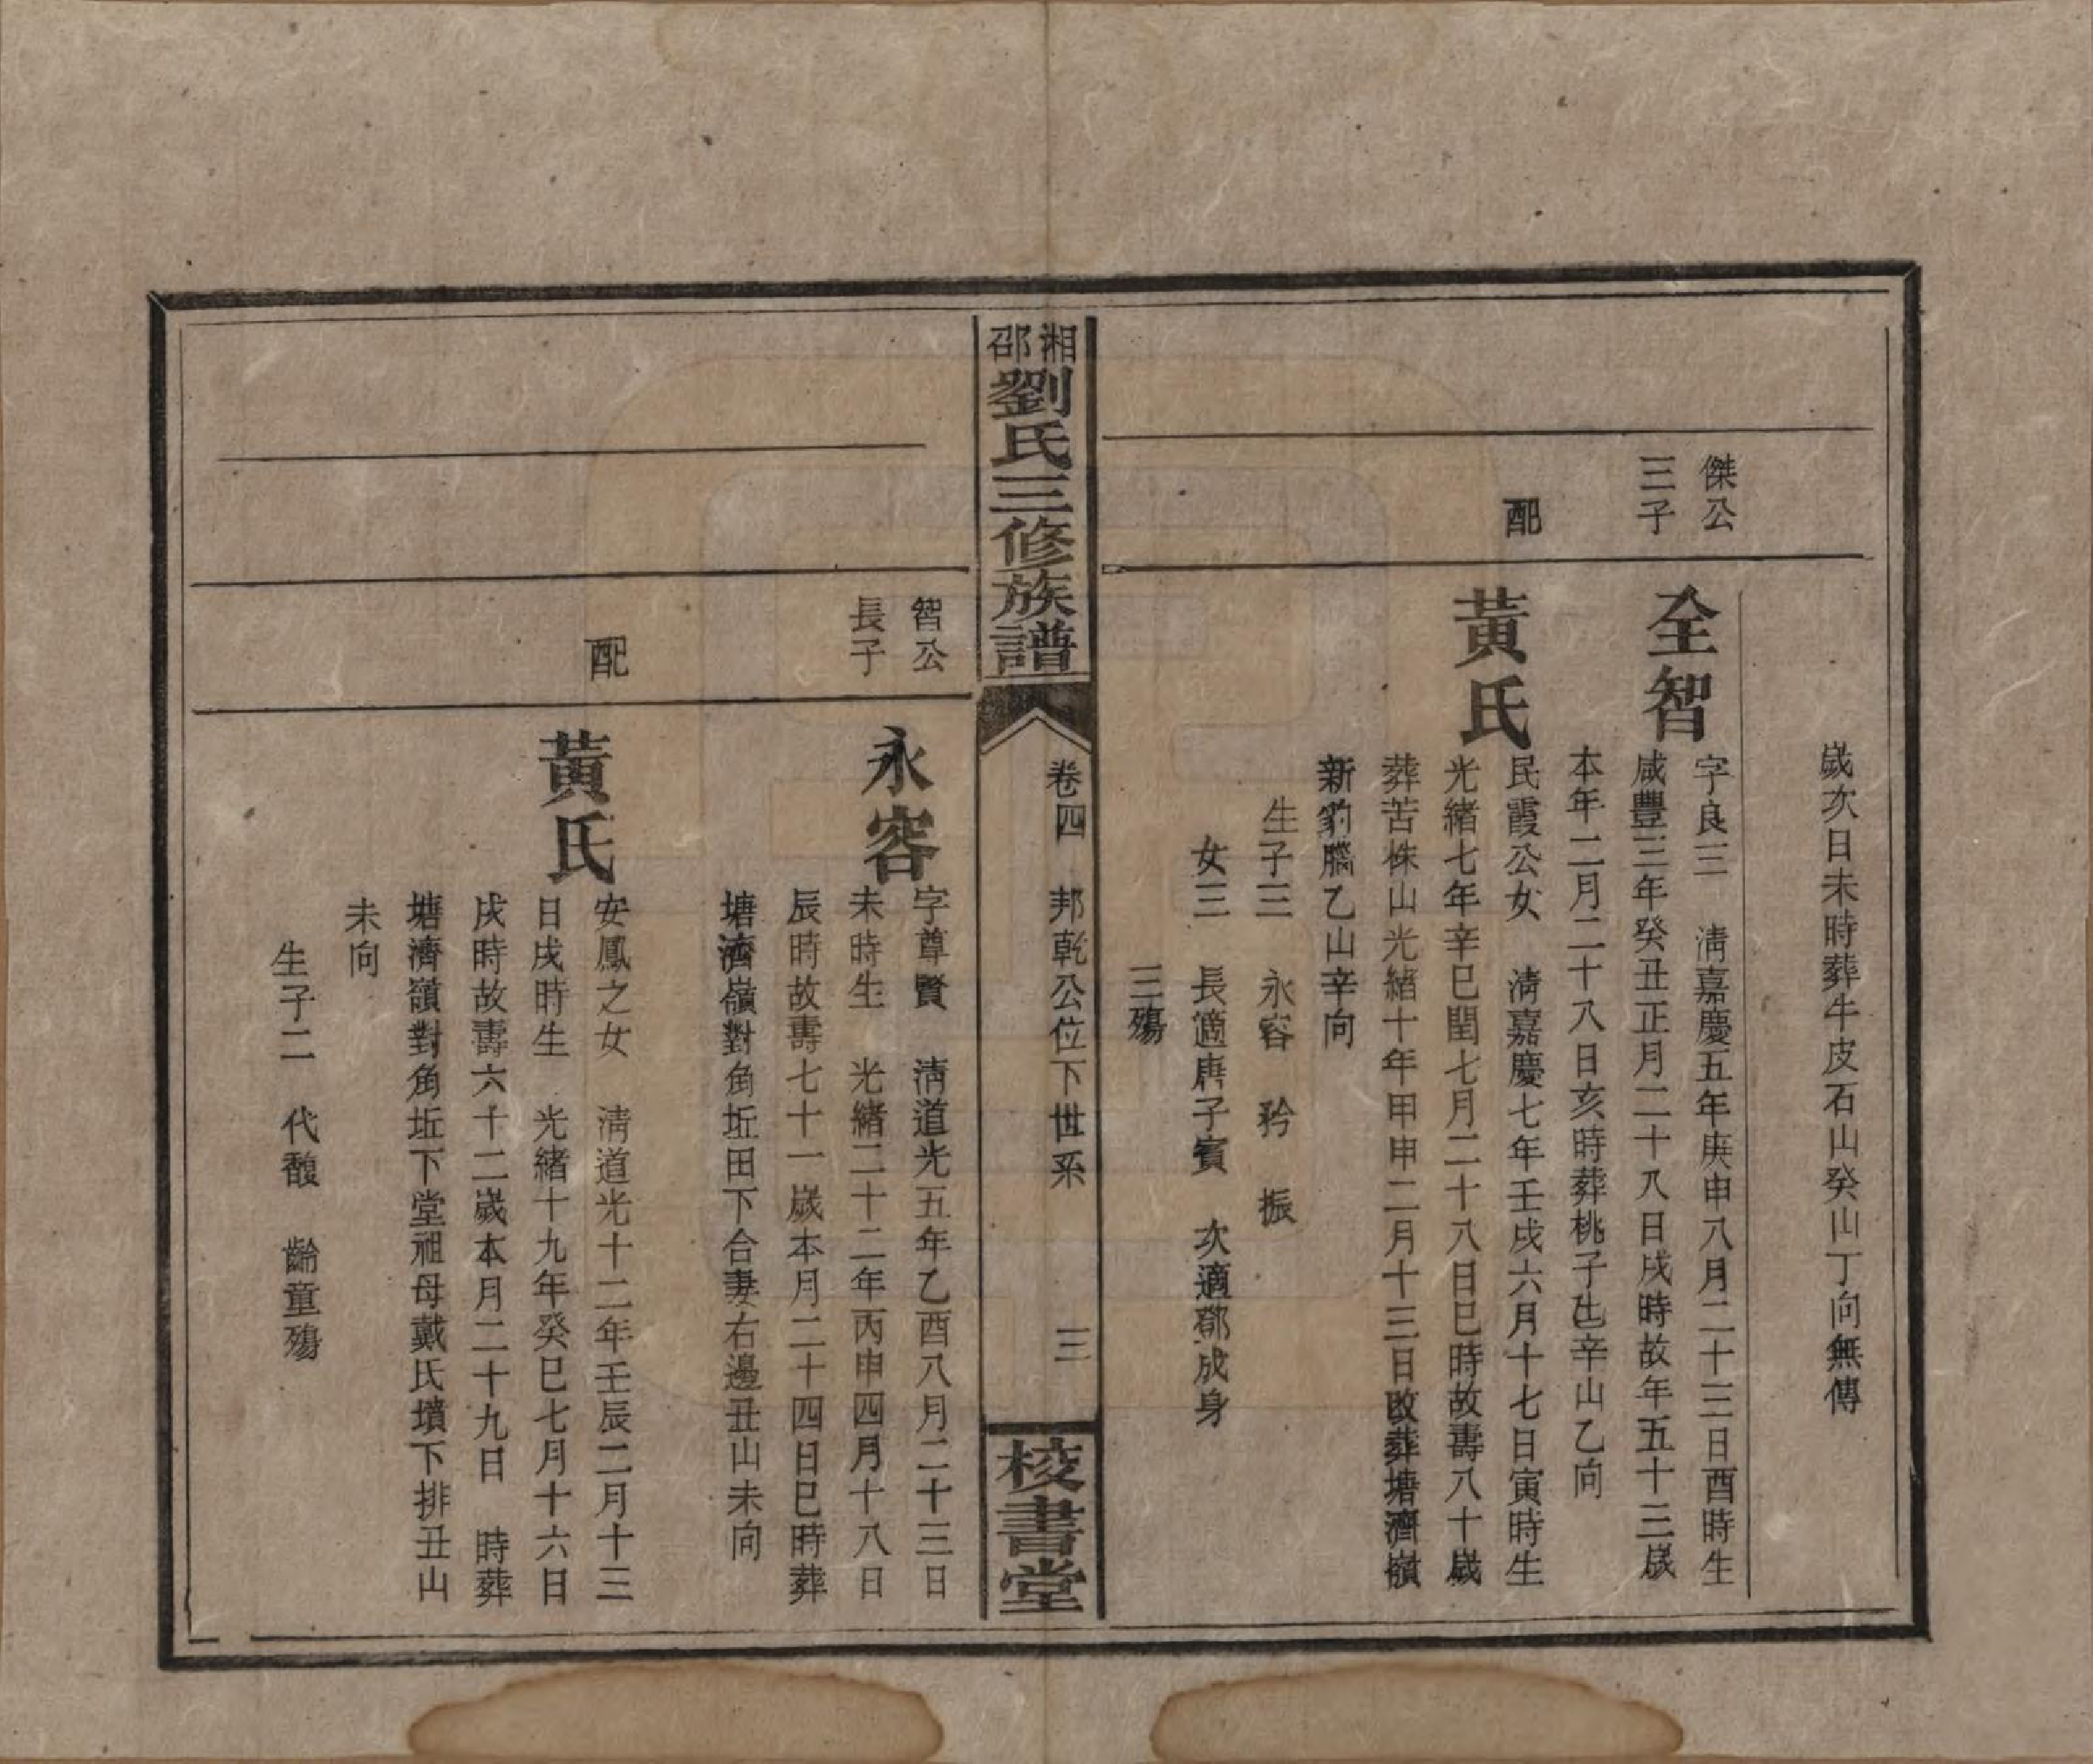 歲次日未時葬牛皮石山癸山丁向無傳
傑公
三子
全智
字良三　清嘉慶五年庚申八月二十三日酉時生
咸豐三年癸丑正月二十八日戌時故年五十三歲
本年二月二十八日亥時葬桃子出辛山乙向
配
黃氏
民霞公女　清嘉慶七年壬戌六月十七日寅時生
光緒七年辛巳閏七月二十八日巳時故壽八十歲
葬苦株山光緒十年甲申二月十三日改葬塘濟嶺
新豹膶乙山辛向
生子三　永容　矜　振
女三　長適唐子賓　次適鄧成身
三殤
湘邵劉氏三修族譜
卷四　邦乾公位下世系　三
校書堂
智公
長子
永容
字尊賢　清道光五年乙酉八月二十三日
未時生　光緒二十二年丙申四月十八日
辰時故壽七十一歲本月二十四日巳時葬
塘濟嶺對角坵田下合妻右邊丑山未向
配
黃氏
安鳳之女　清道光十二年壬辰二月十三
日戌時生　光緒十九年癸巳七月十六日
戌時故壽六十二歲本月二十九日　時葬
塘濟嶺對角坵下堂祖母戴氏墳下排丑山
未向
生子二　代馥　齡童殤